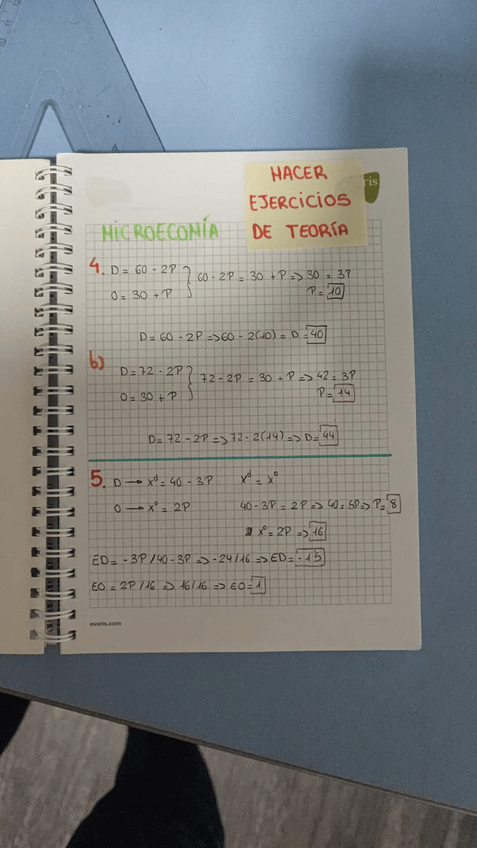 HACER
EJERCICIOS
DE TEORÍA
ris
MICROECOMÍA
4. D = 60 - 2P } 60 - 2P = 30 + P => 30 = 3P
O = 30 + P P = 10
D = 60 - 2P => 60 - 2(10) = D = 40
b) D = 72 - 2P } 72 - 2P = 30 + P => 42 = 3P
O = 30 + P P = 14
D = 72 - 2P => 72 - 2(14) => D = 44
5. D → x^d = 40 - 3P x^d = x^o
O → x^o = 2P 40 - 3P = 2P => 40 = 5P => P = 8
x^o = 2P => 16
ED = -3P/40 - 3P => -24/16 => ED = -1'5
EO = 2P/16 => 16/16 => EO = 1
everis.com